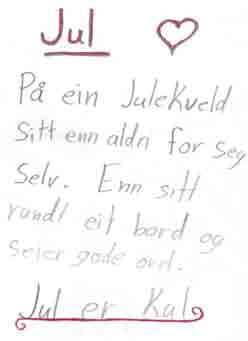 Jul
På ein Julekveld
Sitt enn aldn for seg
Selv. Enn sitt
rundt eit bord og
seier gode ord.
Jul er Kul